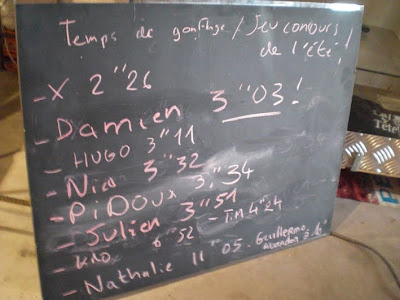 Temps de gonflage / Jeu concours
de l'été !
- X 2"26
- Damien 3"03!
- HUGO 3"11
- Nico 3"32
- PiDOUX 3"34
- Julien 3"51
- KRO 6"52 - T.M 4"24
- Nathalie 11"05 - Guillermo
abandon 3"